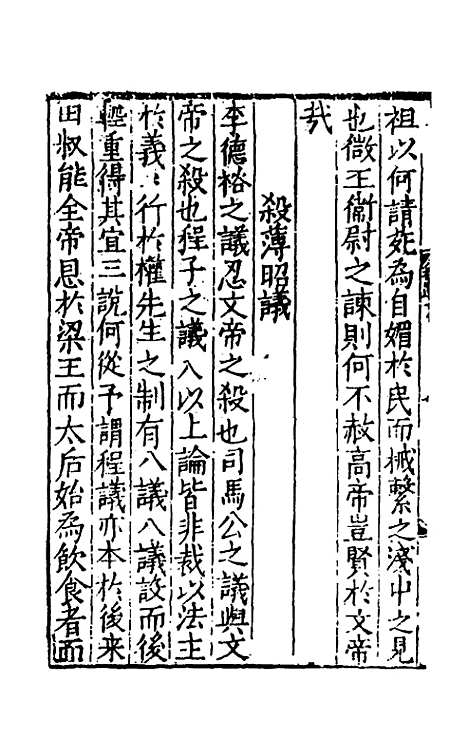 祖以何請苑為自媚於民而械繫之淺中之見
也微王衞尉之諫則何不赦高帝豈賢於文帝
㢤
殺薄昭議
李德裕之議忍文帝之殺也司馬公之議與文
帝之殺也程子之議八以上論皆非裁以法主
於義〻行於權先生之制有八議八議設而後
輕重得其宜三說何從予謂程議亦本於後来
田叔能全帝恩於梁王而太后始為飲食者而